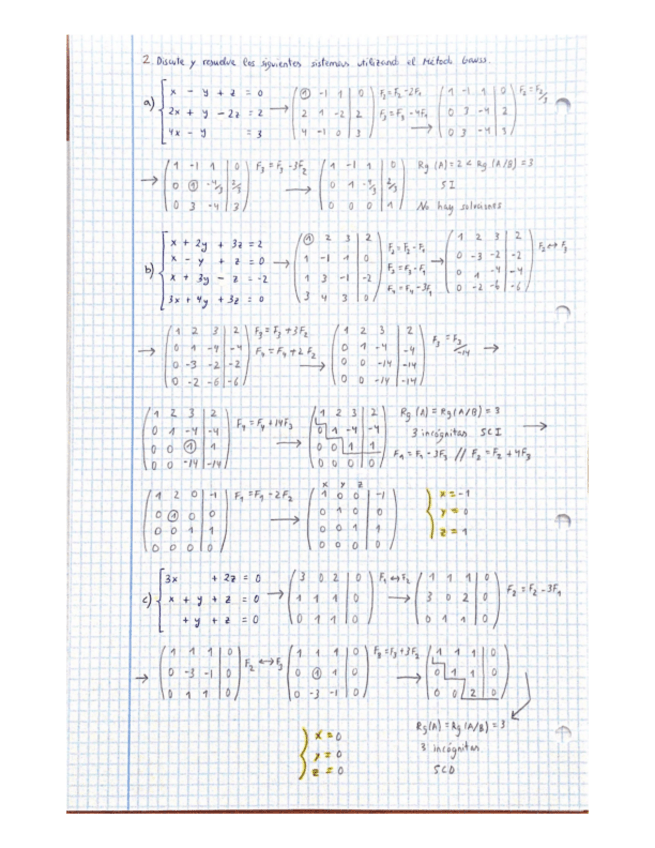 2. Discute y resuelve los siguientes sistemas utilizando el Método Gauss.
a) { x - y + z = 0
2x + y - 2z = 2
4x - y = 3
→ ( 1 -1 1 | 0
2 1 -2 | 2
4 -1 0 | 3 )
F₂=F₂-2F₁
F₃=F₃-4F₁
→ ( 1 -1 1 | 0
0 3 -4 | 2
0 3 -4 | 3 )
F₂=F₂/3
→ ( 1 -1 1 | 0
0 1 -4/3 | 2/3
0 3 -4 | 3 )
F₃=F₃-3F₂
→ ( 1 -1 1 | 0
0 1 -4/3 | 2/3
0 0 0 | 1 )
Rg (A) = 2 < Rg (A/B) = 3
SI
No hay soluciones
b) { x + 2y + 3z = 2
x - y + z = 0
x + 3y - z = -2
3x + 4y + 3z = 0
→ ( 1 2 3 | 2
1 -1 1 | 0
1 3 -1 | -2
3 4 3 | 0 )
F₂=F₂-F₁
F₃=F₃-F₁
F₄=F₄-3F₁
→ ( 1 2 3 | 2
0 -3 -2 | -2
0 1 -4 | -4
0 -2 -6 | -6 )
F₂↔F₃
→ ( 1 2 3 | 2
0 1 -4 | -4
0 -3 -2 | -2
0 -2 -6 | -6 )
F₃=F₃+3F₂
F₄=F₄+2F₂
→ ( 1 2 3 | 2
0 1 -4 | -4
0 0 -14 | -14
0 0 -14 | -14 )
F₃=F₃/-14 →
( 1 2 3 | 2
0 1 -4 | -4
0 0 1 | 1
0 0 -14 | -14 )
F₄=F₄+14F₃
→ ( 1 2 3 | 2
0 1 -4 | -4
0 0 1 | 1
0 0 0 | 0 )
Rg (A) = Rg(A/B) = 3
3 incógnitas SCI →
F₁=F₁-3F₃ // F₂=F₂+4F₃
( 1 2 0 | -1
0 1 0 | 0
0 0 1 | 1
0 0 0 | 0 )
F₁=F₁-2F₂
→ x y z
( 1 0 0 | -1
0 1 0 | 0
0 0 1 | 1
0 0 0 | 0 )
{ x = -1
y = 0
z = 1
c) { 3x + 2z = 0
x + y + z = 0
+ y + z = 0
→ ( 3 0 2 | 0
1 1 1 | 0
0 1 1 | 0 )
F₁↔F₂
→ ( 1 1 1 | 0
3 0 2 | 0
0 1 1 | 0 )
F₂=F₂-3F₁
→ ( 1 1 1 | 0
0 -3 -1 | 0
0 1 1 | 0 )
F₂↔F₃
( 1 1 1 | 0
0 1 1 | 0
0 -3 -1 | 0 )
F₃=F₃+3F₂
→ ( 1 1 1 | 0
0 1 1 | 0
0 0 2 | 0 )
Rg(A) = Rg(A/B) = 3
3 incógnitas
SCD
{ x = 0
y = 0
z = 0